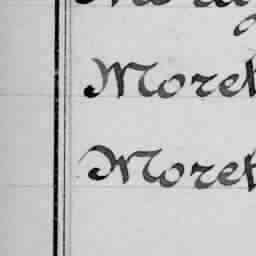 Moret
Moret